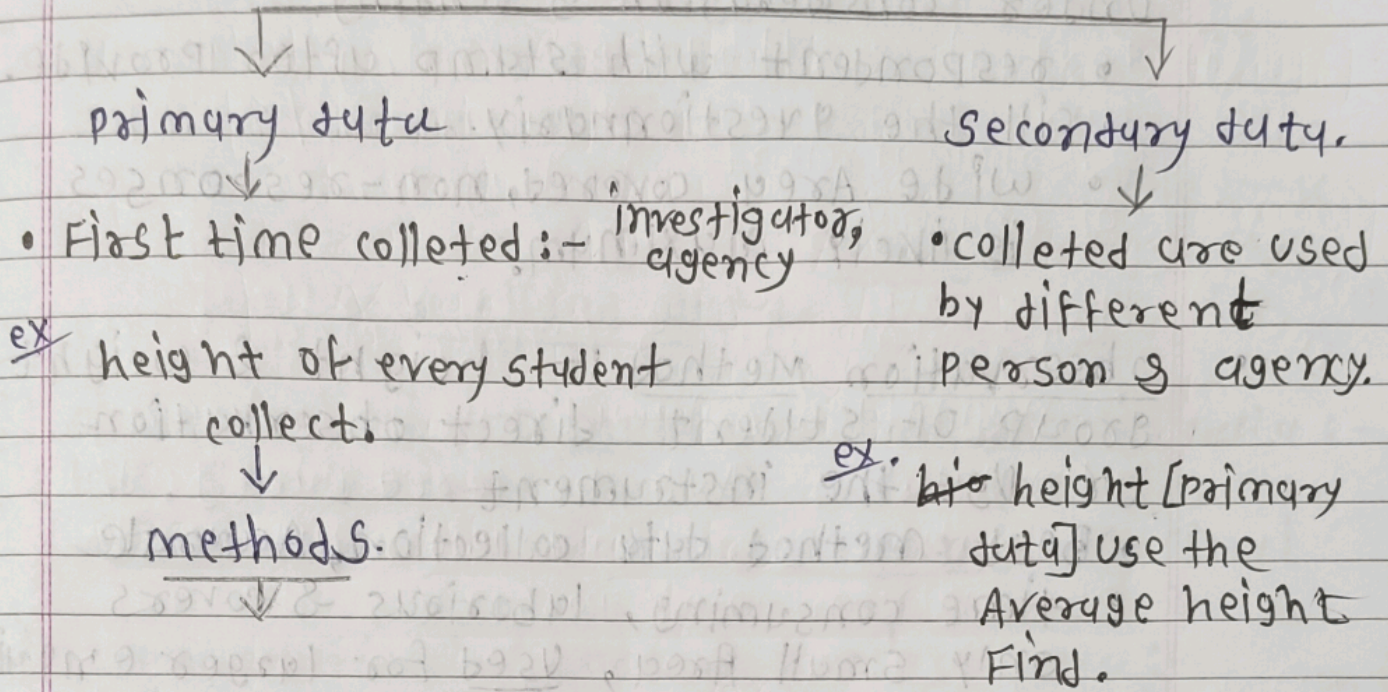 primary data
secondary data.
• First time colleted :- investigator,
agency
ex height of every student
collect.
methods.
• colleted are used
by different
person & agency.
ex. height [primary
data] use the
Average height
Find.